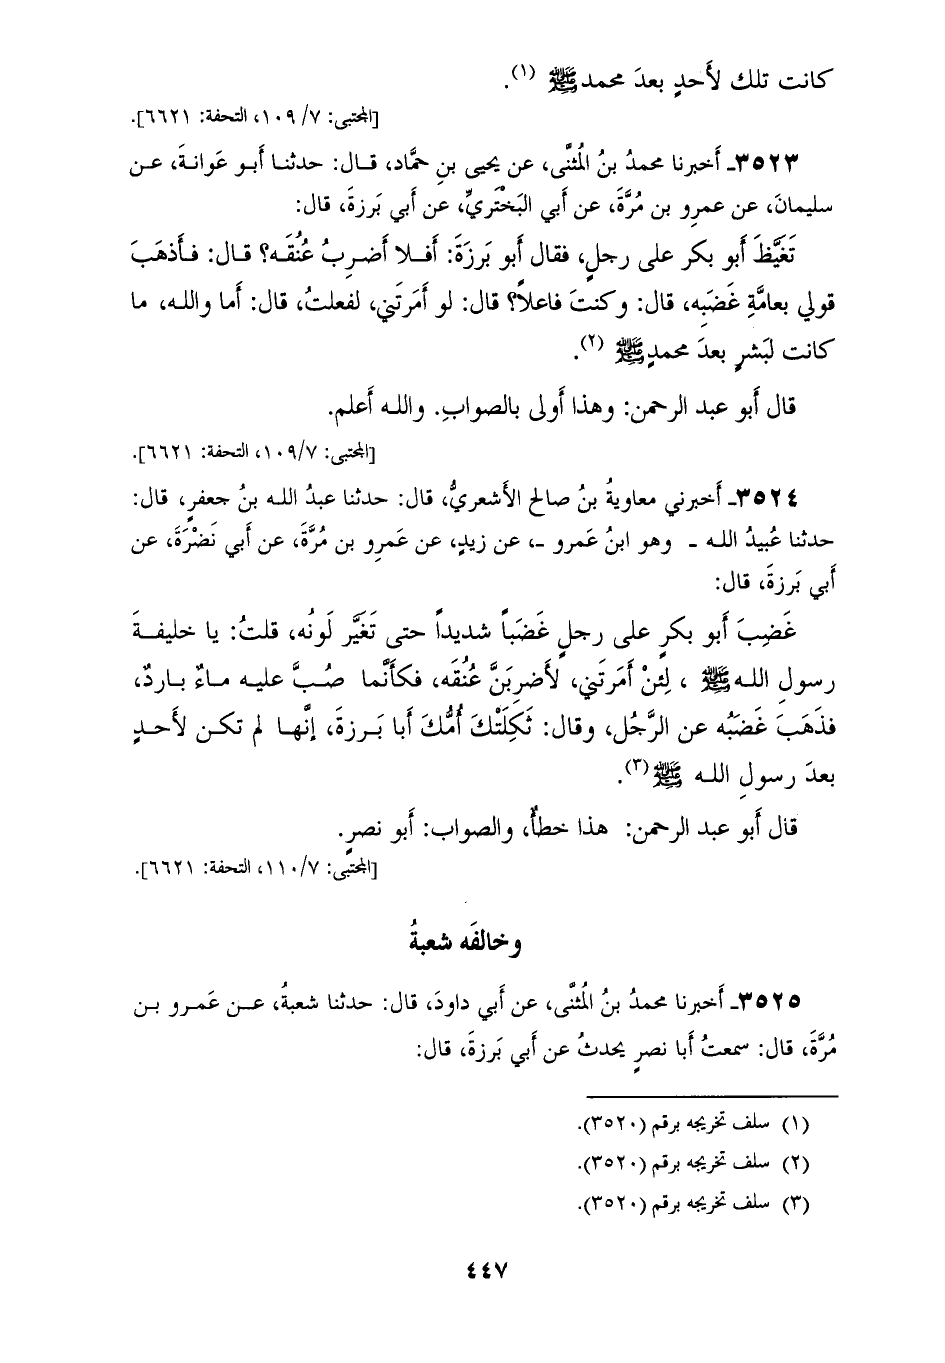 كانت تلك لأَحدٍ بعدَ محمدﷺ (١).
[المجتبى: ١٠٩/٧، التحفة: ٦٦٢١].
٣٥٢٣ـ أخبرنا محمدُ بنُ المُثنَّى، عن يحيى بنِ حمَّاد، قـال: حدثنـا أبـو عَوانـةَ، عـن
سليمانَ، عن عمرِو بن مُرَّةَ، عن أبي البَخْتَريِّ، عن أبي بَرزةَ، قال:
تَغَيَّظَ أبو بكر على رجلٍ، فقال أبو بَرزَةَ: أَفـلا أَضـرِبُ عُنُقَـه؟ قـال: فـأَذهَبَ
قولي بعامَّةِ غَضَبِه، قال: وكنتَ فاعلاً؟ قال: لو أَمَرتَني، لفعلتُ، قال: أما واللـه، ما
كانت لبَشرٍ بعدَ محمدٍﷺ (٢).
قال أبو عبد الرحمن: وهذا أَولى بالصوابِ. واللـه أَعلم.
[المجتبى: ١٠٩/٧، التحفة: ٦٦٢١].
٣٥٢٤ـ أخبرني معاويةُ بنُ صالح الأشعريُّ، قال: حدثنا عبدُ اللـه بنُ جعفرٍ، قال:
حدثنا عُبيدُ اللـه ـ وهو ابنُ عَمرو ـ، عن زيدٍ، عن عَمرِو بن مُرَّةَ، عن أبي نَضْرَةَ، عن
أبي بَرزةَ، قال:
غَضِبَ أبو بكرٍ على رجلٍ غَضَباً شديداً حتى تَغَيَّر لَونُه، قلتُ: يا خليفـةَ
رسولِ اللـهﷺ ، لِئنْ أَمَرتَني، لأَضرِبَنَّ عُنُقَه، فكأَنَّما صُـبَّ عليـه مـاءٌ بـاردٌ،
فذَهَبَ غَضَبُه عن الرَّجُل، وقال: ثَكِلَتْكَ أُمُّكَ أبا بَـرزةَ، إنَّهـا لم تكـن لأَحـدٍ
بعدَ رسولِ اللـه ﷺ(٣).
قال أبو عبد الرحمن: هذا خطأٌ، والصواب: أبو نصرٍ.
[المجتبى: ١١٠/٧، التحفة: ٦٦٢١].
وخالفَه شعبةُ
٣٥٢٥ـ أخبرنا محمدُ بنُ المُثنَّى، عن أبي داودَ، قال: حدثنا شعبةُ، عـن عَمـرو بـن
مُرَّةَ، قال: سمعتُ أبا نصرٍ يحدثُ عن أبي بَرزةَ، قال:
(١) سلف تخريجه برقم (٣٥٢٠).
(٢) سلف تخريجه برقم (٣٥٢٠).
(٣) سلف تخريجه برقم (٣٥٢٠).
٤٤٧